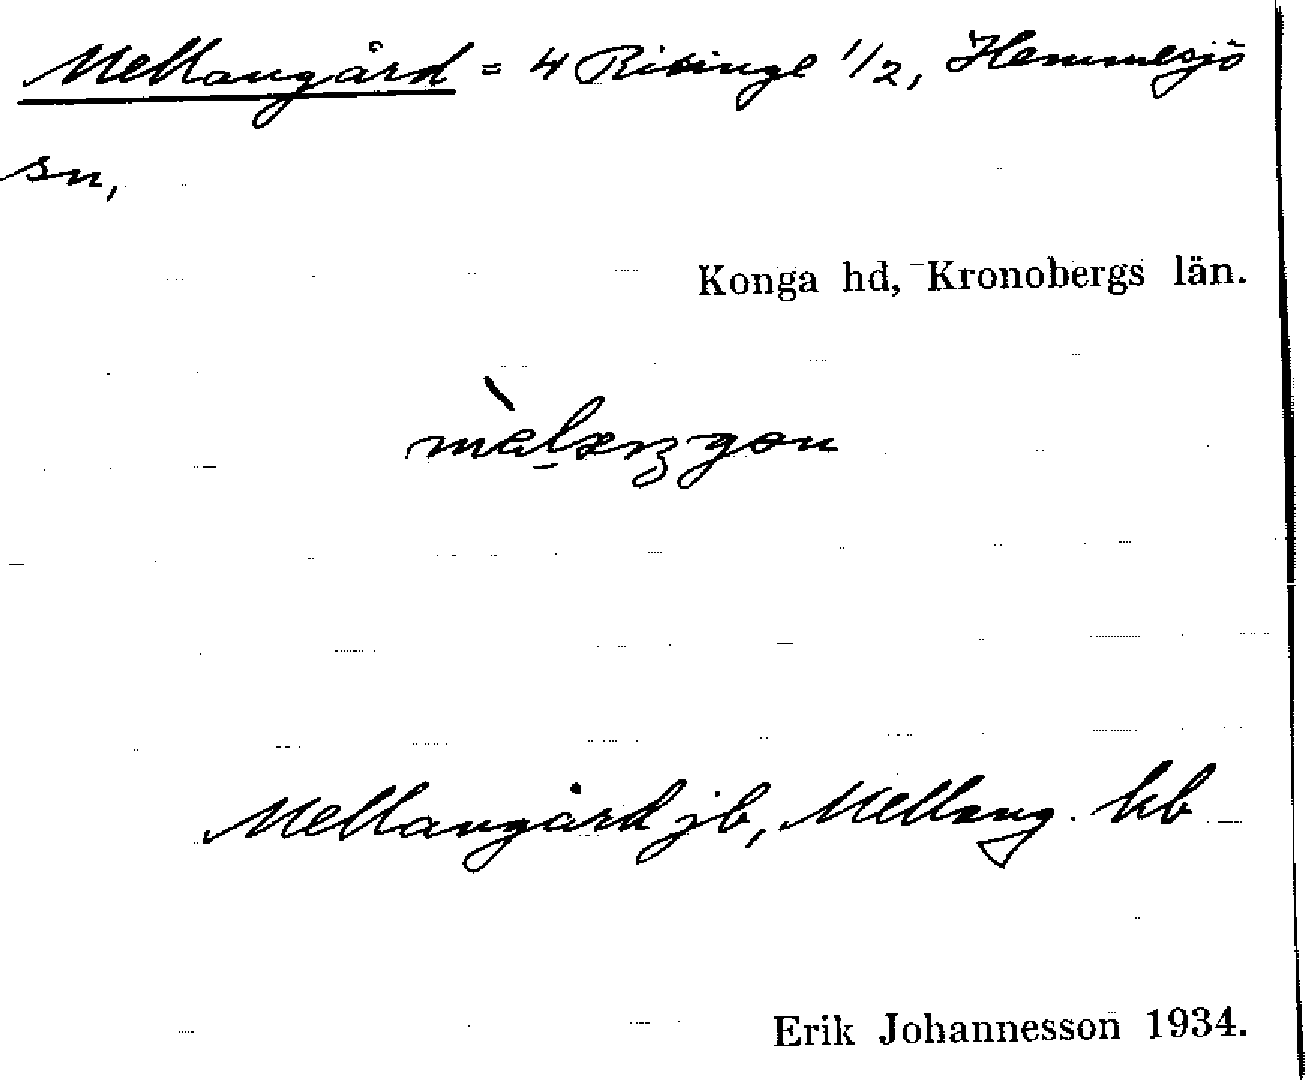 Mellangård = 4 Risinge 1/2, Hemmesjö
sn,
Konga hd, Kronobergs län.
Mellangård jb, Mellang. kb
Erik Johannesson 1934.